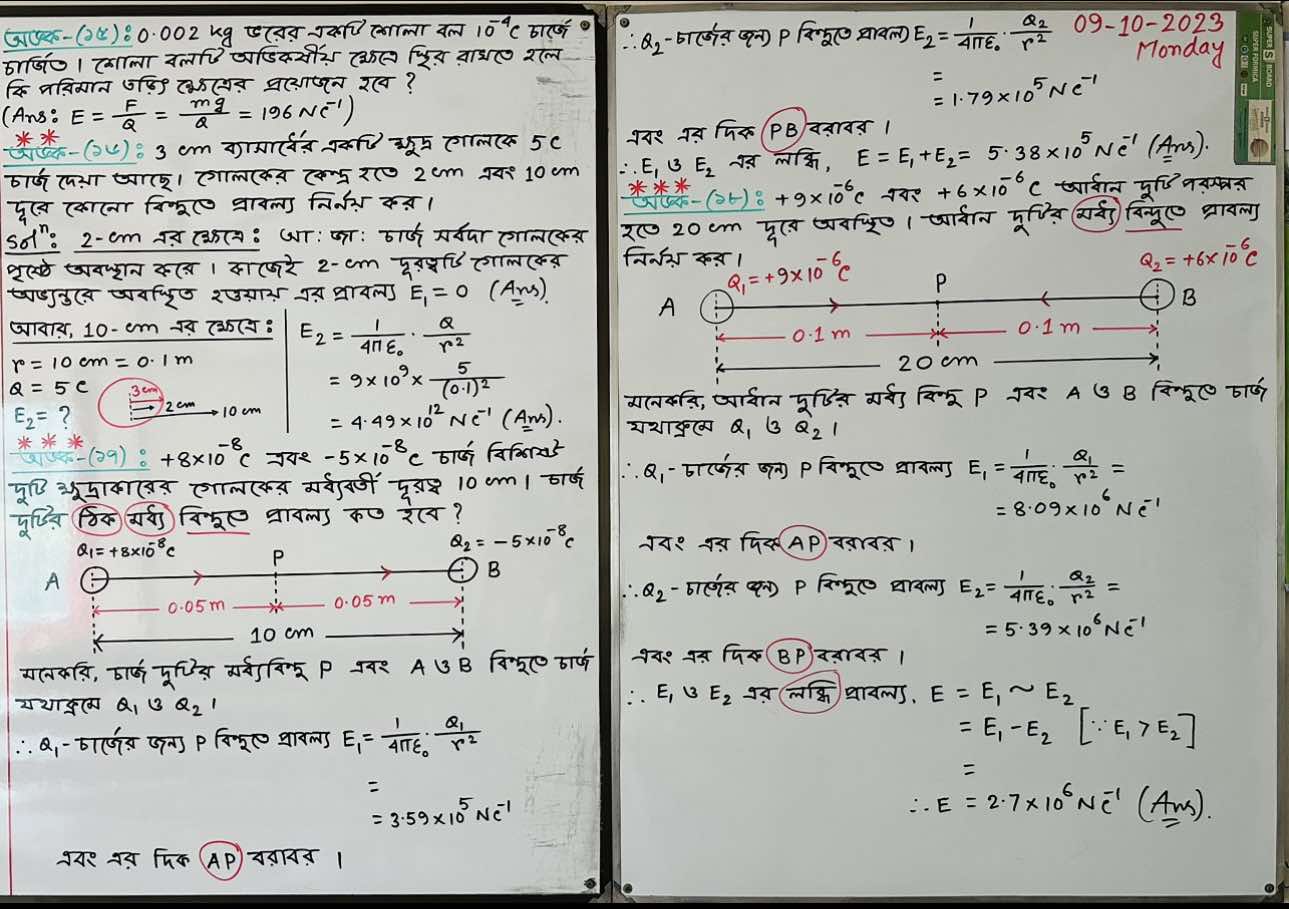 অংক-(১৫): 0.002 kg ভরের একটি শোলা বল 10⁻⁴C চার্জে
চার্জিত। শোলা বলটি অভিকর্ষীয় ক্ষেত্রে স্থির রাখতে হলে
কি পরিমান তড়িৎ ক্ষেত্রের প্রয়োজন হবে?
(Ans: E = F/Q = mg/Q = 196 NC⁻¹)
** অংক-(১৬): 3 cm ব্যাসার্ধের একটি ক্ষুদ্র গোলকে 5C
চার্জ দেয়া আছে। গোলকের কেন্দ্র হতে 2cm এবং 10 cm
দূরে কোনো বিন্দুতে প্রাবল্য নির্নয় কর।
Solⁿ: 2-cm এর ক্ষেত্রে: আ: জা: চার্জ সর্বদা গোলকের
পৃষ্ঠে অবস্থান করে। কাজেই 2-cm দূরত্বটি গোলকের
অভ্যন্তরে অবস্থিত হওয়ায় এর প্রাবল্য E₁ = 0 (Ans).
আবার, 10-cm এর ক্ষেত্রে:
r = 10 cm = 0.1 m
Q = 5C
E₂ = ?
3cm
2cm
10 cm
E₂ = 1/4πε₀ · Q/r²
= 9×10⁹ × 5/(0.1)²
= 4.49×10¹² NC⁻¹ (Ans).
*** অংক-(১৭): +8×10⁻⁸C এবং -5×10⁻⁸C চার্জ বিশিষ্ট
দুটি ক্ষুদ্রাকারের গোলকের মধ্যবর্তী দূরত্ব 10 cm। চার্জ
দুটির ঠিক মধ্য বিন্দুতে প্রাবল্য কত হবে?
Q₁=+8×10⁻⁸C
Q₂ = -5×10⁻⁸C
A + P - B
0.05 m 0.05 m
10 cm
মনেকরি, চার্জ দুটির মধ্যবিন্দু P এবং A ও B বিন্দুতে চার্জ
যথাক্রমে Q₁ ও Q₂।
∴ Q₁-চার্জের জন্য P বিন্দুতে প্রাবল্য E₁ = 1/4πε₀ · Q₁/r²
=
= 3.59×10⁵ NC⁻¹
এবং এর দিক AP বরাবর।
∴ Q₂-চার্জের জন্য P বিন্দুতে প্রাবল্য E₂ = 1/4πε₀ · Q₂/r²
09-10-2023
Monday
SUPER S BOARD
SUPER FORMICA
=
= 1.79×10⁵ NC⁻¹
এবং এর দিক PB বরাবর।
∴ E₁ ও E₂ এর লব্ধি, E = E₁+E₂ = 5.38×10⁵ NC⁻¹ (Ans).
*** অংক-(১৮): +9×10⁻⁶C এবং +6×10⁻⁶C আধান দুটি পরস্পর
হতে 20 cm দূরে অবস্থিত। আধান দুটির মধ্য বিন্দুতে প্রাবল্য
নির্নয় কর।
Q₁ = +9×10⁻⁶C
Q₂ = +6×10⁻⁶C
A + P + B
0.1 m 0.1 m
20 cm
মনেকরি, আধান দুটির মধ্য বিন্দু P এবং A ও B বিন্দুতে চার্জ
যথাক্রমে Q₁ ও Q₂।
∴ Q₁-চার্জের জন্য P বিন্দুতে প্রাবল্য E₁ = 1/4πε₀ · Q₁/r² =
= 8.09×10⁶ NC⁻¹
এবং এর দিক AP বরাবর।
∴ Q₂-চার্জের জন্য P বিন্দুতে প্রাবল্য E₂ = 1/4πε₀ · Q₂/r² =
= 5.39×10⁶ NC⁻¹
এবং এর দিক BP বরাবর।
∴ E₁ ও E₂ এর লব্ধি প্রাবল্য, E = E₁ ~ E₂
= E₁ - E₂ [∵ E₁ > E₂]
=
∴ E = 2.7×10⁶ NC⁻¹ (Ans).